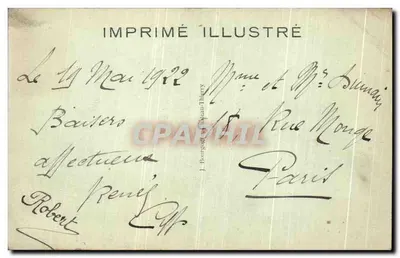 IMPRIMÉ ILLUSTRÉ
Le 19 Mai 1922
Baisers
affectueux
René
Robert
Mme et Mr Dumain
15, Rue Monge
Paris
CPAPHIL